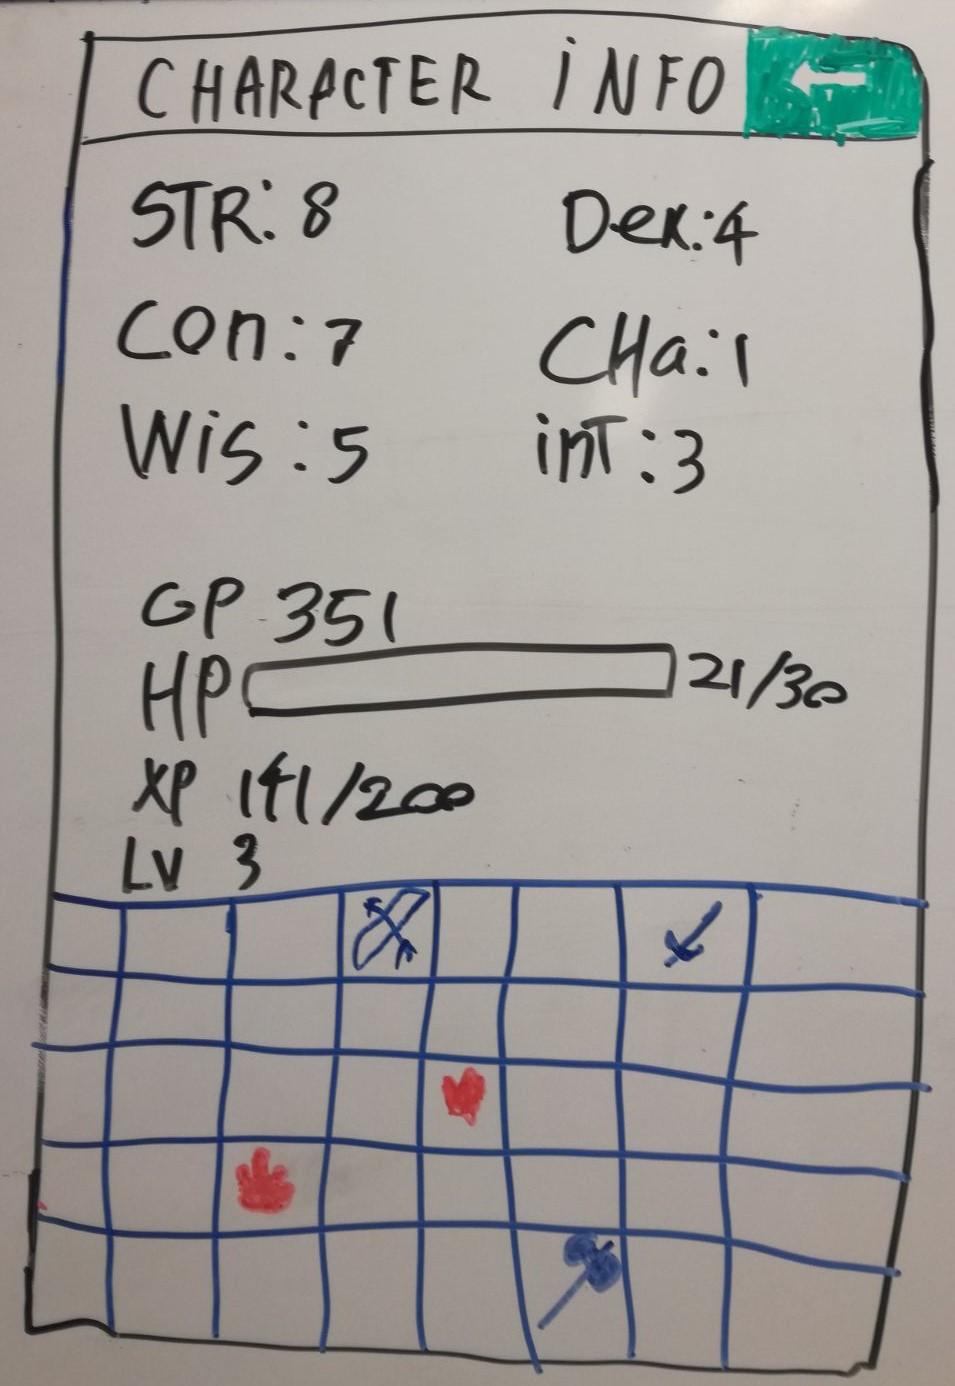 CHARACTER iNFO
STR: 8 Dex: 4
Con: 7 CHa: 1
Wis: 5 inT: 3
GP 351
HP 21/30
XP 141/200
LV 3